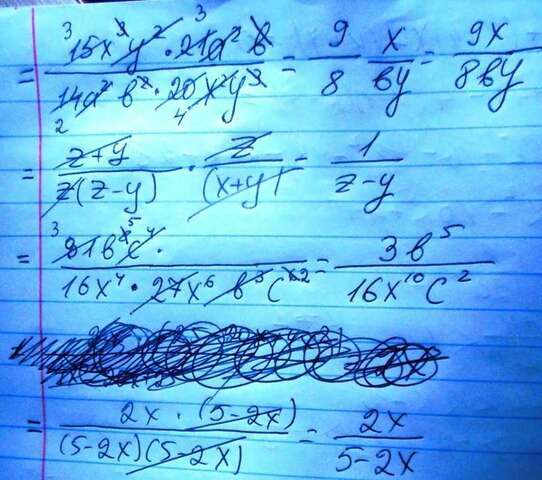 = 15x³y² · 21a² b / 14a² b² · 20 x² y³ = 9/8 x/by = 9x/8by
= z+y / z(z-y) · z / (x+y) = 1 / z-y
= 81b⁸c⁴ · / 16x⁴ · 27x⁶ b³ c⁶ = 3b⁵ / 16x¹⁰c²
= 2x · (5-2x) / (5-2x)(5-2x) = 2x / 5-2x